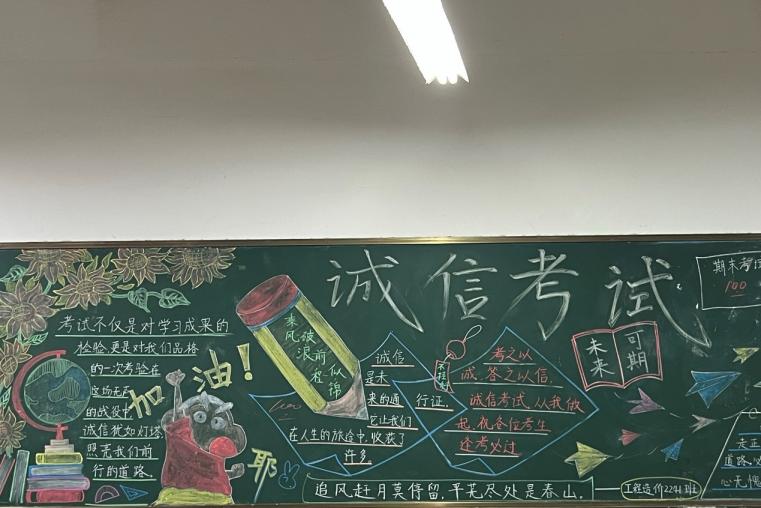 诚信考试
考试不仅是对学习成果的
检验,更是对我们品格
的一次考验在
这场无声
的战役中
诚信犹如灯塔
照亮我们前
行的道路.
加油!
耶
乘风破浪
前程似锦
诚信
是未
来的通
行证.
它让我们
在人生的旅途中,收获了
许多
考之以
诚.答之以信.
诚信考试 从我做
起.祝各位考生
逢考必过
未来
可期
期末考试
100
追风赶月莫停留.平芜尽处是春山.
工程造价2241班
是正
道路.必
心无愧